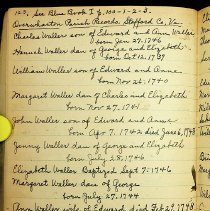 100, See Blue Book I p. 100-1-2-3.
Overwharton Parish Records, Stafford Co, Va.
Charles Waller son of Edward and Ann Waller
born Jan 27, 1746
Hannah Waller dau of George and Elizabeth
born Oct 12, 1739
William Waller son of Edward and Anne
born Nov 24, 1740
Margaret Waller dau of Charles and Elizabeth
born Nov 27, 1741
John Waller son of Edward and Anne
born Apr 7, 1742 died June 6, 1743
Jenny Waller dau of George and Elizabeth
born July 28, 1746
Elizabeth Waller Baptized Sept 7, 1746
Margaret Waller dau of George
born July 27, 1744
Ann Waller wife of Edward died Feb 27, 1748